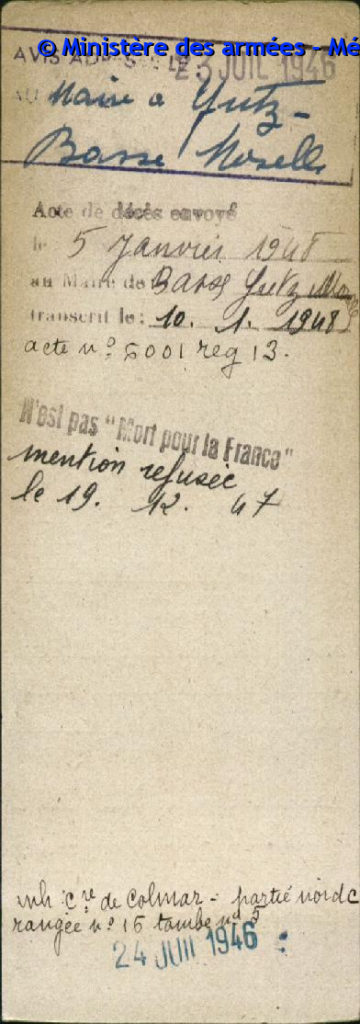 © Ministère des armées - Mé
AVIS ADRESSÉ LE: 23 JUIL 1946
AU Maire à Yutz-
Basse Moselle
Acte de décès envoyé
le 5 Janvier 1948
au Maire de Basse Yutz
transcrit le: 10. 1. 1948
acte n° 6001 reg 13.
N'est pas "Mort pour la France"
mention refusée
le 19. 12. 47
inh: cre de Colmar - partie nord
rangée n° 15 tombe n° 5
24 JUIL 1946